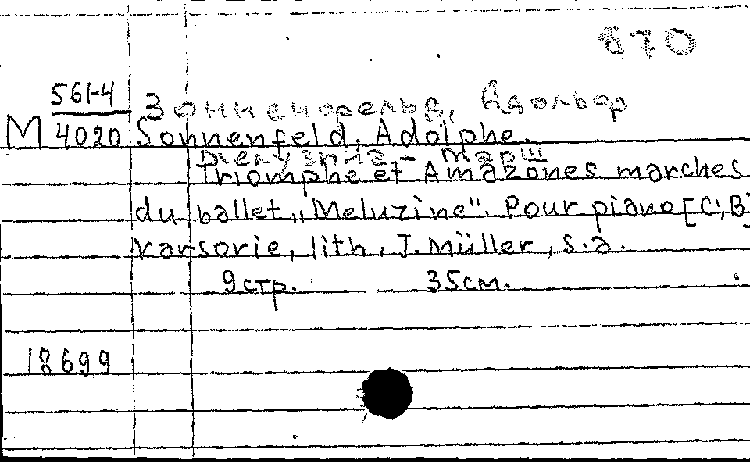 870
561-4
Зонненфельд, Адольф
М 4020 Sonnenfeld, Adolphe.
Мелузина - Марш
Triomphe et Amazones marches
du ballet „Meluzine". Pour piano [C, B]
Varsovie, lith. J. Müller, s.a.
9 стр. 35 см.
18699